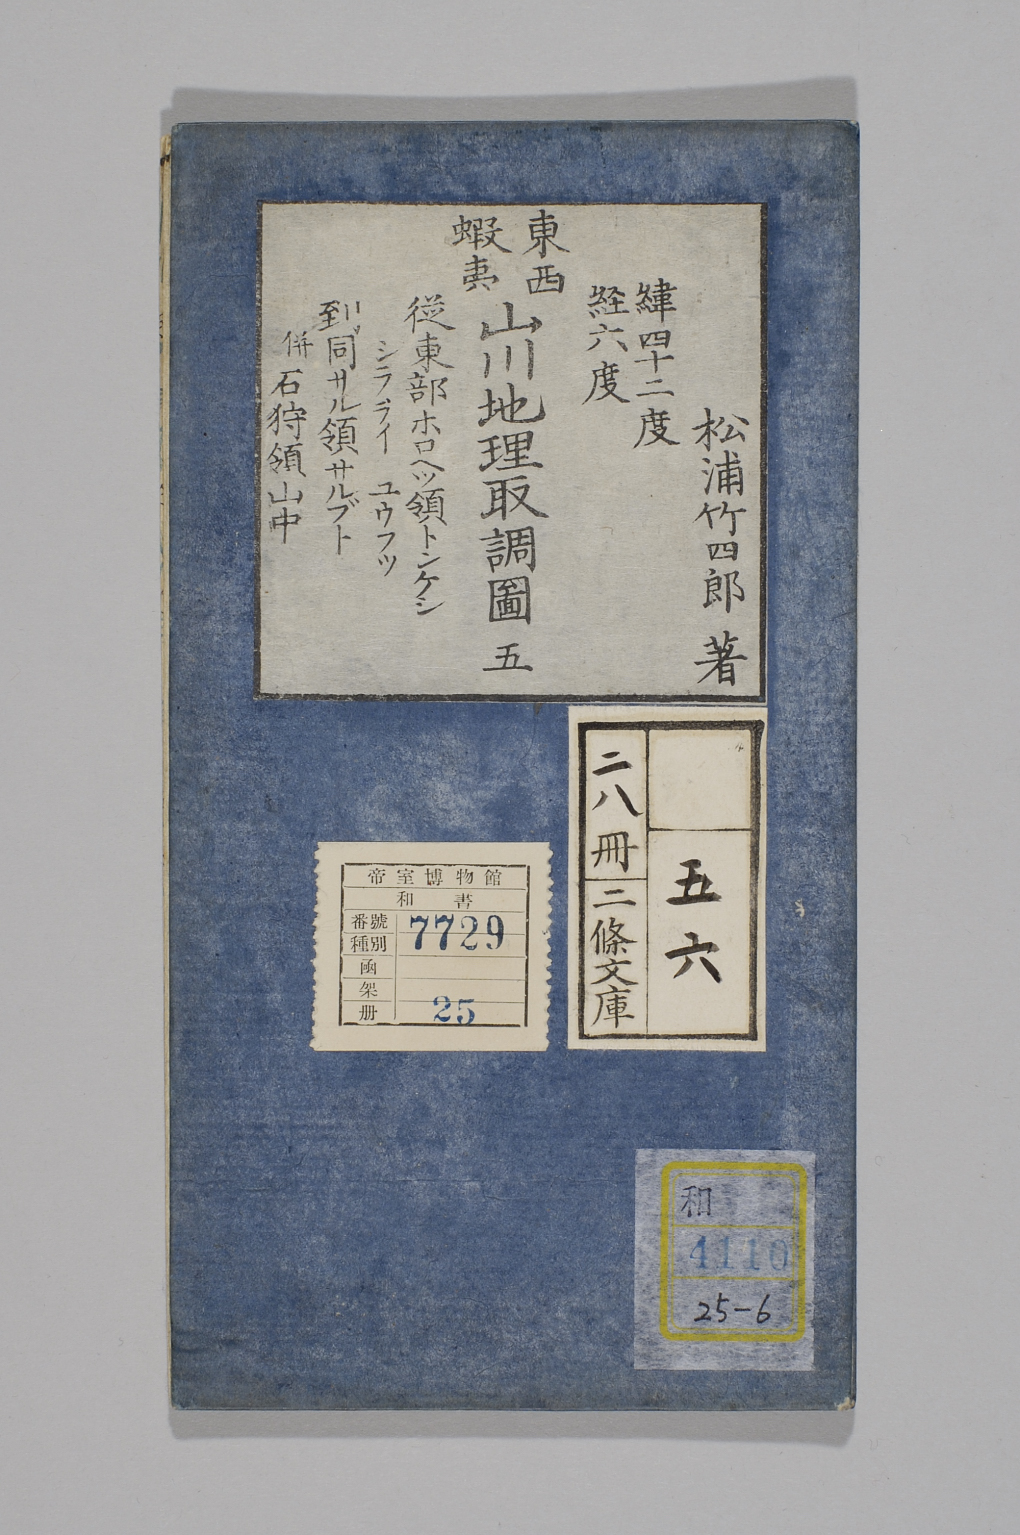 松浦竹四郎 著
緯四十二度
経六度
東西
蝦夷
山川地理取調圖 五
従東部ホロヘツ領トンケシ
シラヲイ ユウフツ
到同サル領サルブト
併石狩領山中
五六
二八冊
二條文庫
帝室博物館
和書
番號 7729
種別
函
架
册 25
和
4110
25-6